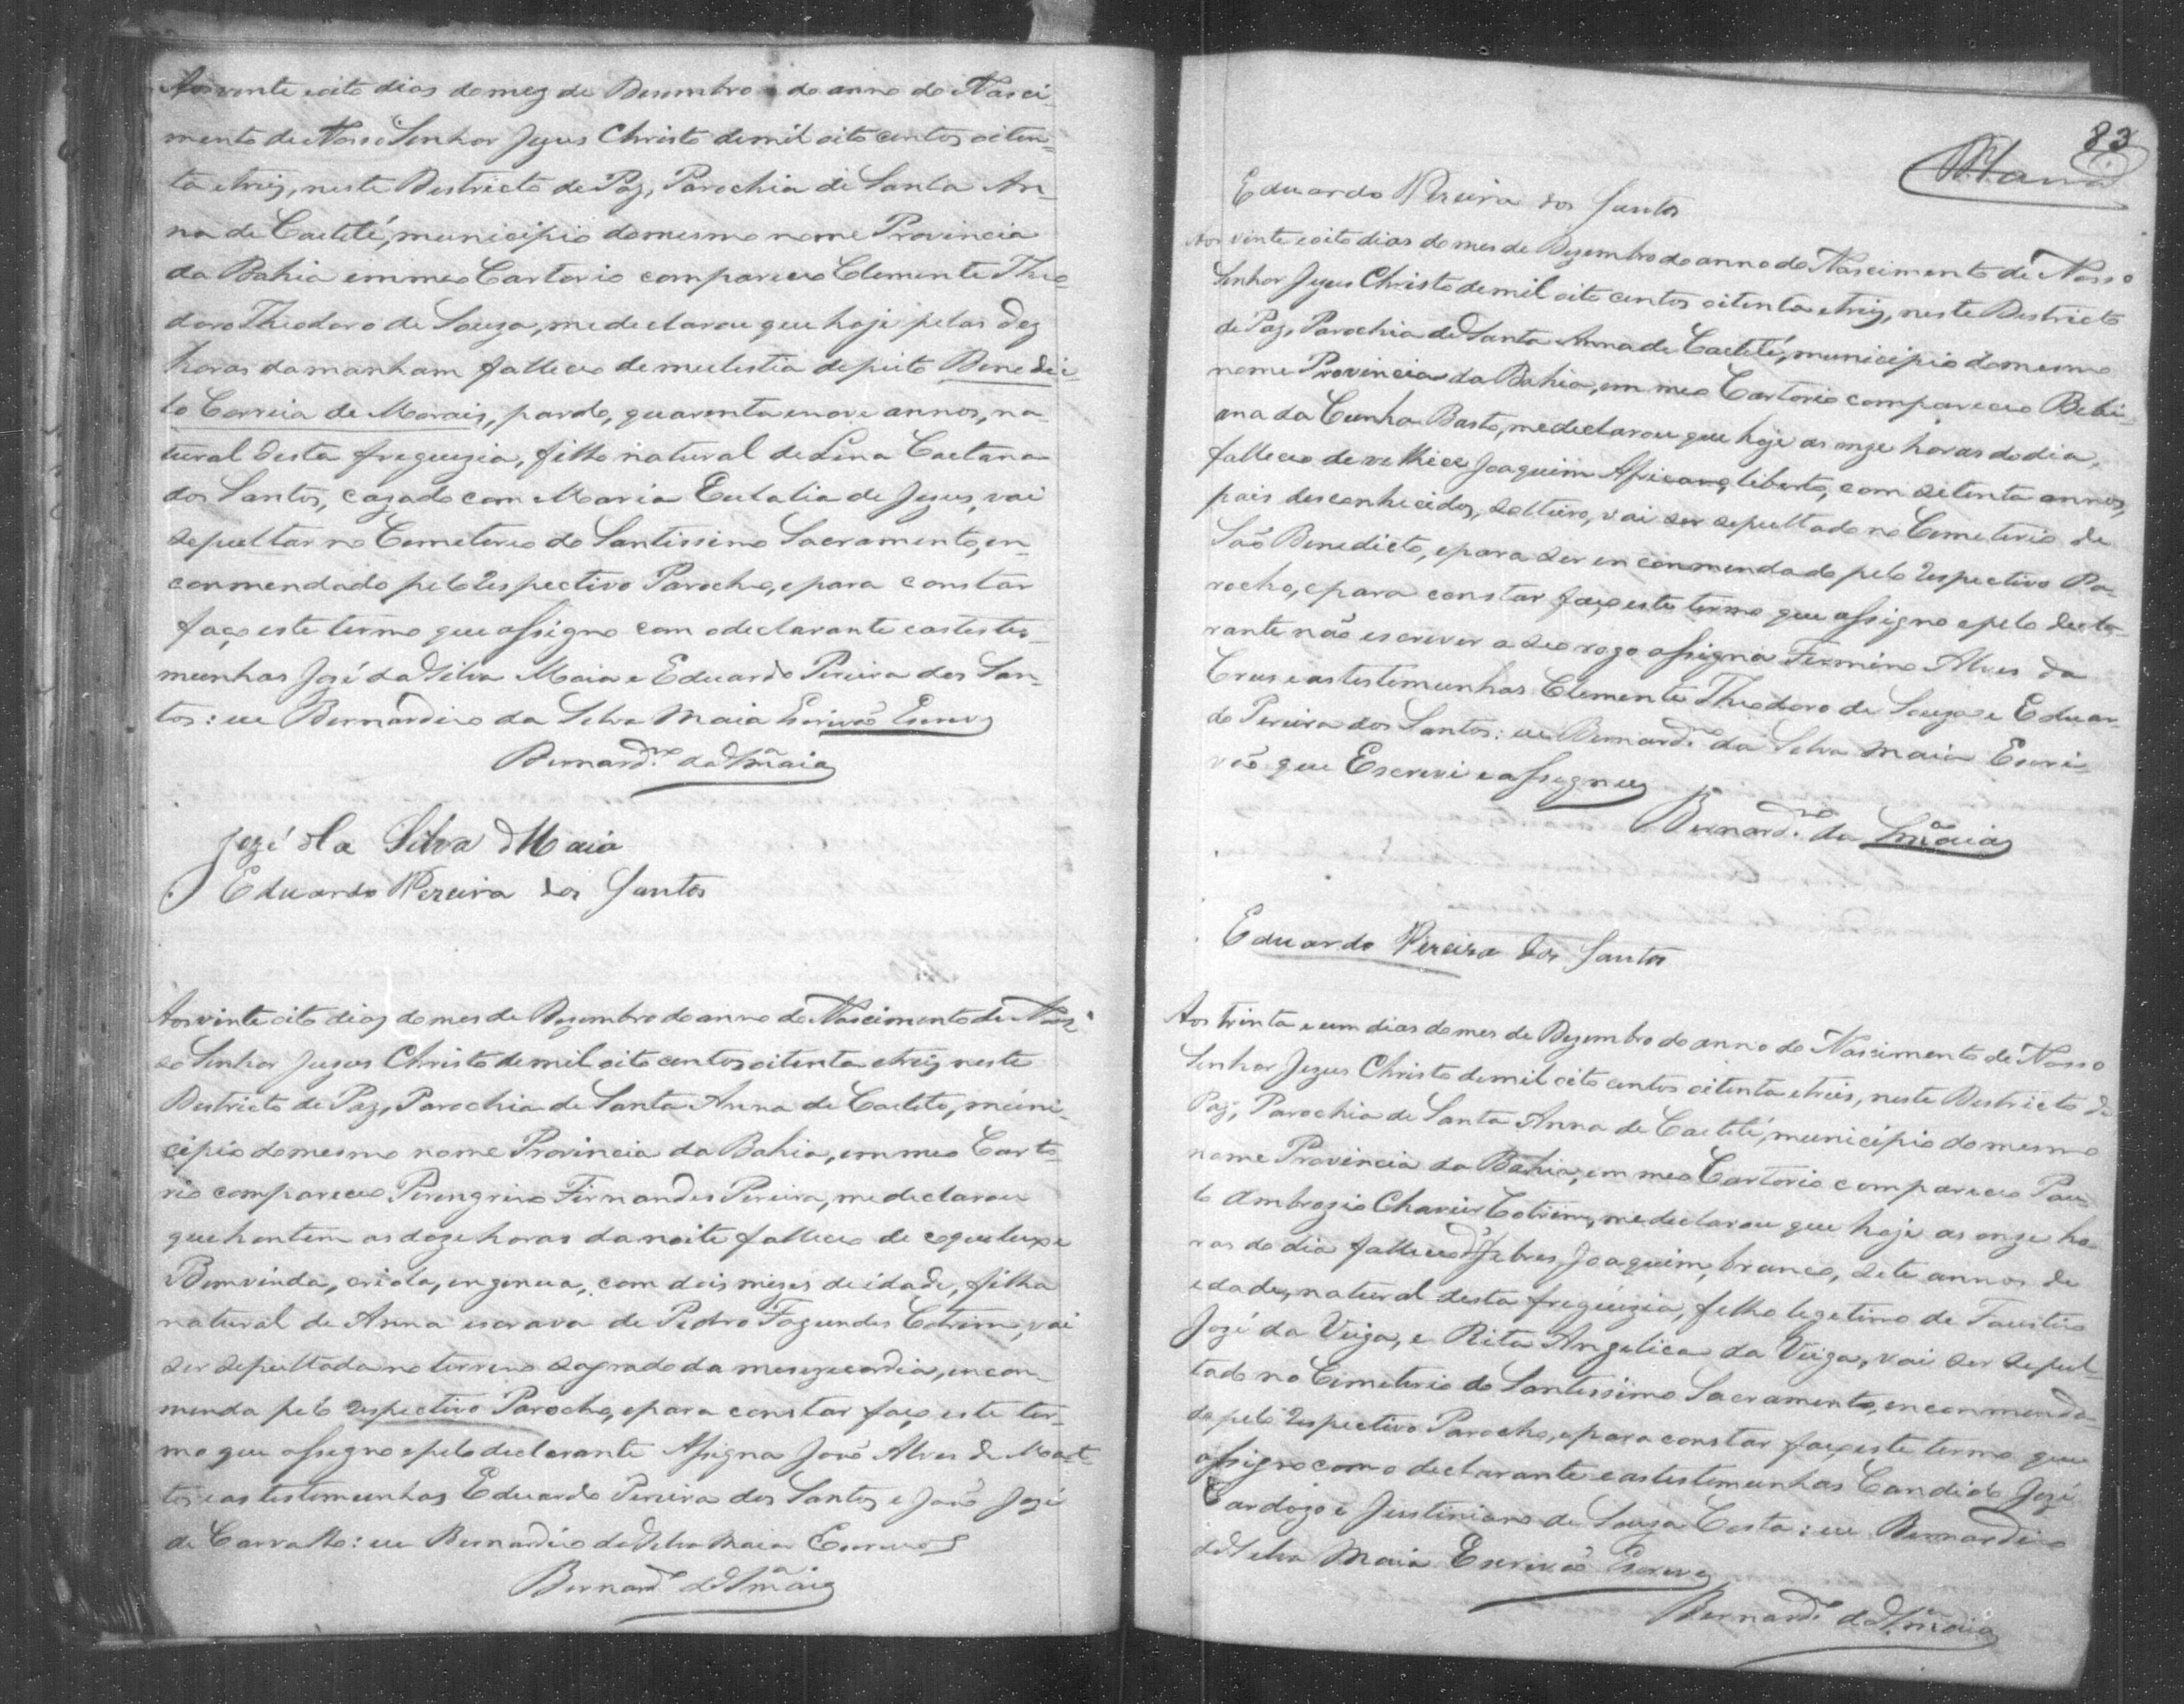 Aos vinte eoito dias do mez de Desembro do anno do Nasci-
mento de Nosso Senhor Jezus Christo demil oito centos oiten=
ta etreis, neste Destricto de Paz, Parochia de Santa An-
na de Caetité, municipio domesmo nome Provincia
da Bahia emmeo Cartorio compareceo Clemente Theo-
doro Theodoro de Souza, medeclarou que hoje pelas dez
horas damanham falleceo de mulestia depeito Benedi-
to Correia de Morais, pardo, quarenta enove annos, na-
tural desta freguizia, filho natural de Lina Caetana
dos Santos, cazado com Maria Eulalia de Jezus, vai
sepultar no Cemeterio do Santissimo Sacramento, en-
conmendado pelo respectivo Parocho, epara constar
faço este termo que assigno com odeclarante eastestes-
munhas José da Silva Maia e Eduardo Pereira dos San-
tos: eu Bernardino da Silva Maia Escrivaõ Escrevy
Bernard.no da S.a Maia
Jozé da Silva Maia
Eduardo Pereira dos Santos
Aosvinte oito dias domes de Dezembro do anno do Nascimento de Nos-
so Senhor Jezus Christo demil oito centos oitenta etreis neste
Destricto de Paz, Parochia de Santa Anna de Caetite, muni-
cipio domesmo nome Provincia da Bahia, em meo Carto-
rio compareceo Peregrino Firnandes Pereira, medeclarou
que hontem as doze horas da noite falleceo de
Bemvinda, criola, engenua, com dois mezes de idade, filha
natural de Anna escrava de Pedro Fagundes Cotrim, vai
ser sepultada no terreno sagrado da mesezecordia, encon-
menda pelo respectivo Parocho, epara constar faço este ter-
mo que assigno epelo declarante Assigna João Alves de Mat-
tos eas testemunhas Eduardo Pereira dos Santos e João José
de Carvalho: eu Bernardino da Silva Maia Escrevy
Bernard.no da S.a Maia
83
Maia
Eduardo Pereira dos Santos
Aos vinte eoito dias do mes de Dezembro do anno do Nascimento de Nosso
Senhor Jezus Christo demil oito centos oitenta etreis, neste Destricto
de Paz, Parochia de Santa Anna de Caetité, municipio domesmo
nome Provincia da Bahia, em meo Cartorio compareceo Bebi-
ana da Cunha Basto, medeclarou que hoje as onze horas do dia,
falleceo de velhice Joaquim Africano, liberto, com setenta annos,
pais desconhecidos, solteiro, vai ser sepultado no Cemeterio de
Saõ Benedicto, epara ser enconmendado pelo respectivo Pa-
rocho, epara constar faço este termo que assigno epelo decla-
rante naõ escrever a seo rogo assigna Fermino Alves da
Crus e as testemunhas Clemente Theodoro de Souza e Eduar-
do Pereira dos Santos: eu Bernard.no da Silva Maia Escri-
vaõ que Escrevi e assegney
Bernard.no da S.a Maia
Eduardo Pereira dos Santos
Aos trinta e um dias do mes de Dezembro do anno do Nascimento de Nosso
Senhor Jezus Christo demil oito centos oitenta etreis, neste Destricto de
Paz, Parochia de Santa Anna de Caetité, municipio do mesmo
nome Provincia da Bahia, em meo Cartorio compareceo Pau-
lo Ambrozio Chavier Cotrim, medeclarou que hoje as onze ho-
ras do dia falleceo de febres, Joaquim, branco, sete annos de
edade, natural desta freguizia, filho legetimo de Faustino
Jozé da Veiga, e Rita Angelica da Veiga, vai ser sepul-
tado no Cimeterio do Santissimo Sacramento, enconmenda-
do pelo respectivo Parocho, epara constar faço este termo que
assigno com o declarante e astestemunhas Candido José
Cardozo e Justiniano de Souza Costa: eu Bernardino
da Silva Maia Escrivaõ Escrevy
Bernard.no da S.a Maia